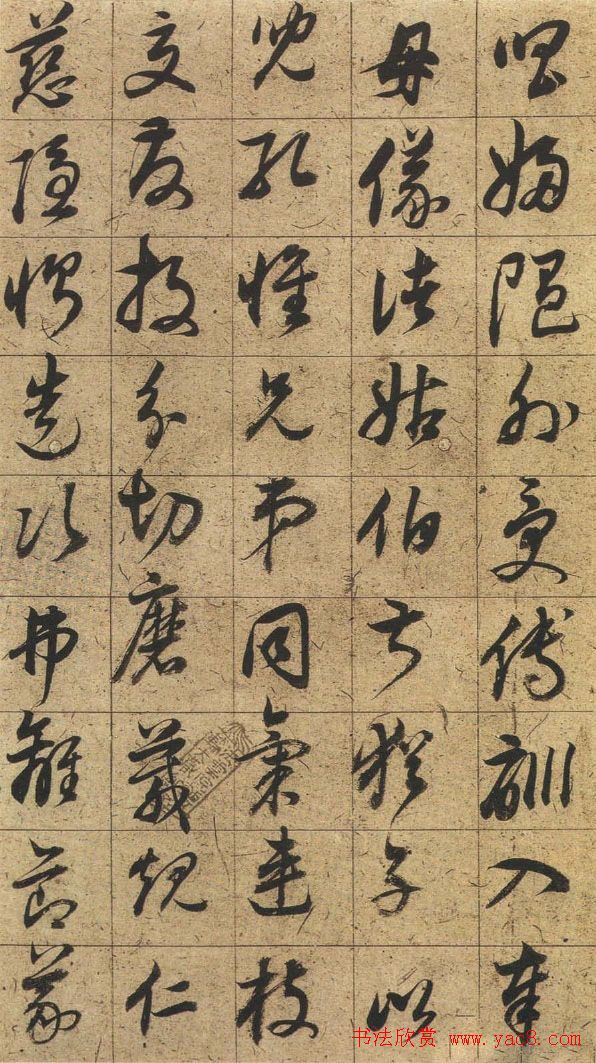 唱婦随外受傅訓入奉
母儀諸姑伯叔猶子比
児孔懐兄弟同氣連枝
交友投分切磨箴規仁
慈隠惻造次弗離節義
书法欣赏 www.yac8.com